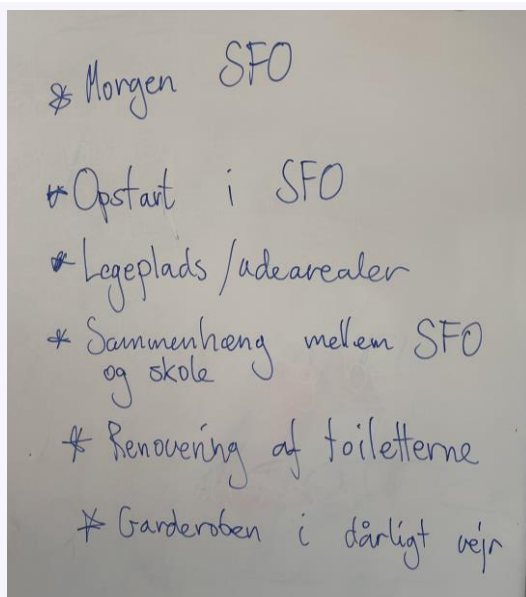 * Morgen SFO
* Opstart i SFO
* Legeplads/udearealer
* Sammenhæng mellem SFO
og skole
* Renovering af toiletterne
* Garderoben i dårligt vejr